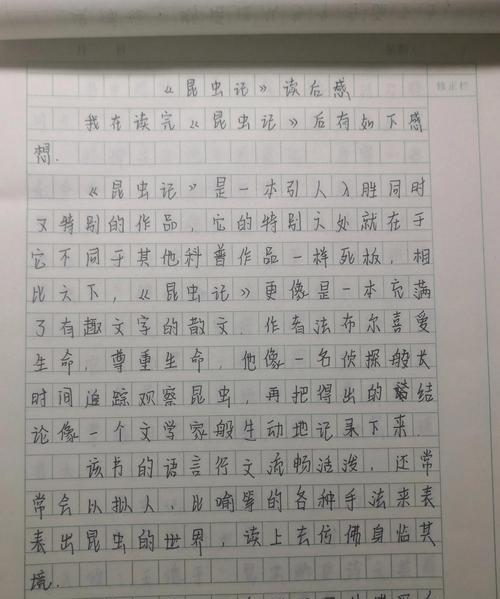 修正栏
《昆虫记》读后感
我在读完《昆虫记》后有如下感
想.
《昆虫记》是一本引人入胜同时
又特别的作品，它的特别之处就在于
它不同于其他科普作品一样死板，相
比之下，《昆虫记》更像是一本充满
了有趣文字的散文．作者法布尔喜爱
生命，尊重生命，他像一名侦探般长
时间追踪观察昆虫，再把得出的结
论像一个文学家般生动地记录下来．
该书的语言行文流畅活泼，还常
常会以拟人、比喻等的各种手法来表
表出昆虫的世界，读上去仿佛身临其
境．